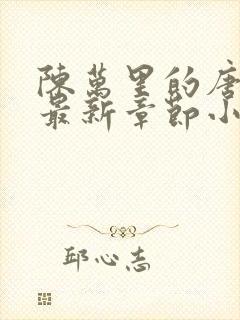 陳萬里的唐
最新章節小
邱心志